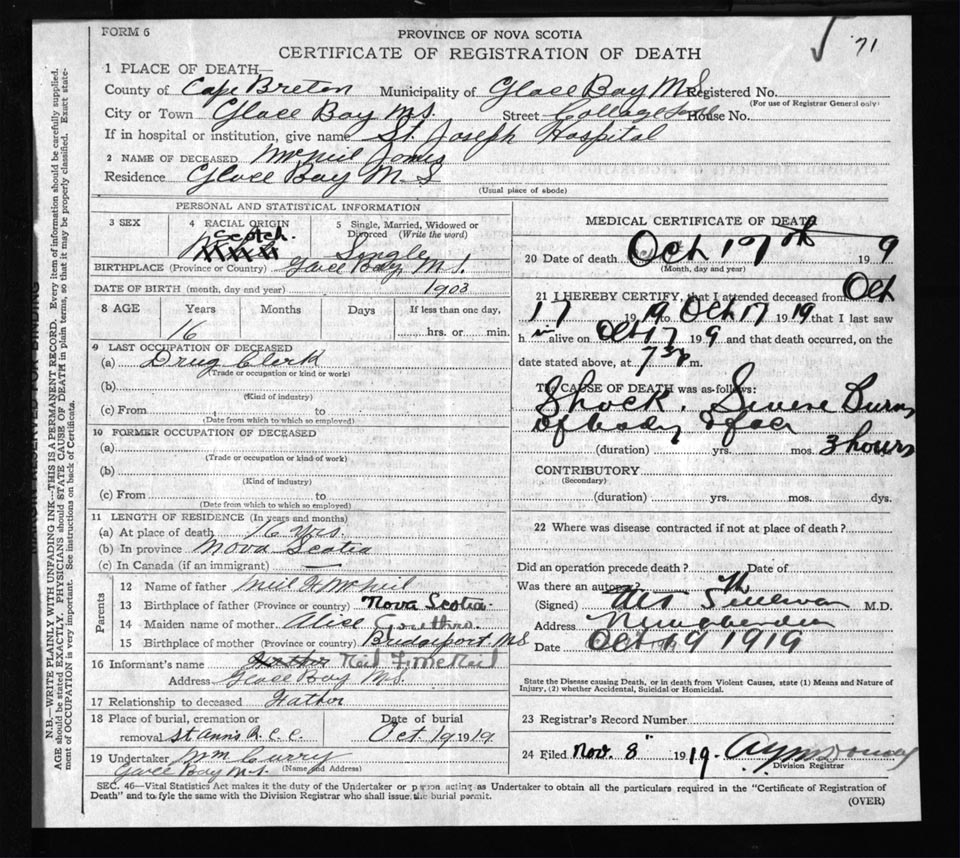 FORM 6
PROVINCE OF NOVA SCOTIA
CERTIFICATE OF REGISTRATION OF DEATH
71
1 PLACE OF DEATH—
County of Cape Breton Municipality of Glace Bay N.S. Registered No.
(For use of Registrar General only)
City or Town Glace Bay N.S. Street House No.
If in hospital or institution, give name St. Joseph Hospital
2 NAME OF DECEASED McNeil James
Residence Glace Bay N.S
(Usual place of abode)
PERSONAL AND STATISTICAL INFORMATION
3 SEX 4 RACIAL ORIGIN 5 Single, Married, Widowed or Divorced (Write the word)
Scotch. Single
BIRTHPLACE (Province or Country) Glace Bay, N.S.
DATE OF BIRTH (month, day and year) 1903
8 AGE Years Months Days If less than one day,
16 hrs. or min.
9 LAST OCCUPATION OF DECEASED
(a) Drug Clerk
(Trade or occupation or kind or work)
(b)
(Kind of industry)
(c) From to
(Date from which to which so employed)
10 FORMER OCCUPATION OF DECEASED
(a)
(Trade or occupation or kind of work)
(b)
(Kind of industry)
(c) From to
(Date from which to which so employed)
11 LENGTH OF RESIDENCE (In years and months)
(a) At place of death 16 Yrs.
(b) In province Nova Scotia
(c) In Canada (if an immigrant)
Parents
12 Name of father Neil F. McNeil
13 Birthplace of father (Province or country) Nova Scotia.
14 Maiden name of mother Alice
15 Birthplace of mother (Province or country) Bridgeport N S
16 Informant's name Father Neil F. McNeil
Address Glace Bay N.S.
17 Relationship to deceased Father
18 Place of burial, cremation or removal St Anns Date of burial Oct 19 1919
19 Undertaker Wm Curry
(Name and Address)
Glace Bay N.S.
MEDICAL CERTIFICATE OF DEATH
20 Date of death Oct 17th 19 9
(Month, day and year)
21 I HEREBY CERTIFY, that I attended deceased from Oct
17 1919 to Oct 17 1919 that I last saw
h im alive on Oct 17 19 9 and that death occurred, on the
date stated above, at 7 30 m.
The CAUSE OF DEATH was as follows:
Shock. Severe Burns
of body & face
(duration) yrs. mos. 3 hours
CONTRIBUTORY
(Secondary)
(duration) yrs. mos. dys.
22 Where was disease contracted if not at place of death?
Did an operation precede death? Date of
Was there an autopsy?
(Signed) Sullivan M.D.
Address
Date Oct 19 1919
State the Disease causing Death, or in death from Violent Causes, state (1) Means and Nature of
Injury, (2) whether Accidental, Suicidal or Homicidal.
23 Registrar's Record Number
24 Filed Nov. 8" 1919.
Division Registrar
SEC. 46—Vital Statistics Act makes it the duty of the Undertaker or person acting as Undertaker to obtain all the particulars required in the "Certificate of Registration of
Death" and to fyle the same with the Division Registrar who shall issue the burial permit.
(OVER)
N.B.—WRITE PLAINLY WITH UNFADING INK—THIS IS A PERMANENT RECORD. Every item of information should be carefully supplied.
AGE should be stated EXACTLY. PHYSICIANS should STATE CAUSE OF DEATH in plain terms, so that it may be properly classified. Exact state-
ment of OCCUPATION is very important. See instructions on back of Certificate.